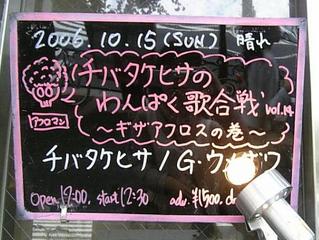 2006.10.15(SUN) 晴れ
チバタケヒサの
わんぱく歌合戦 vol.14
アフロマン
〜ギザアフロスの巻〜
チバタケヒサ / G.
Open 12:00. start 12:30 adv. ¥1500.